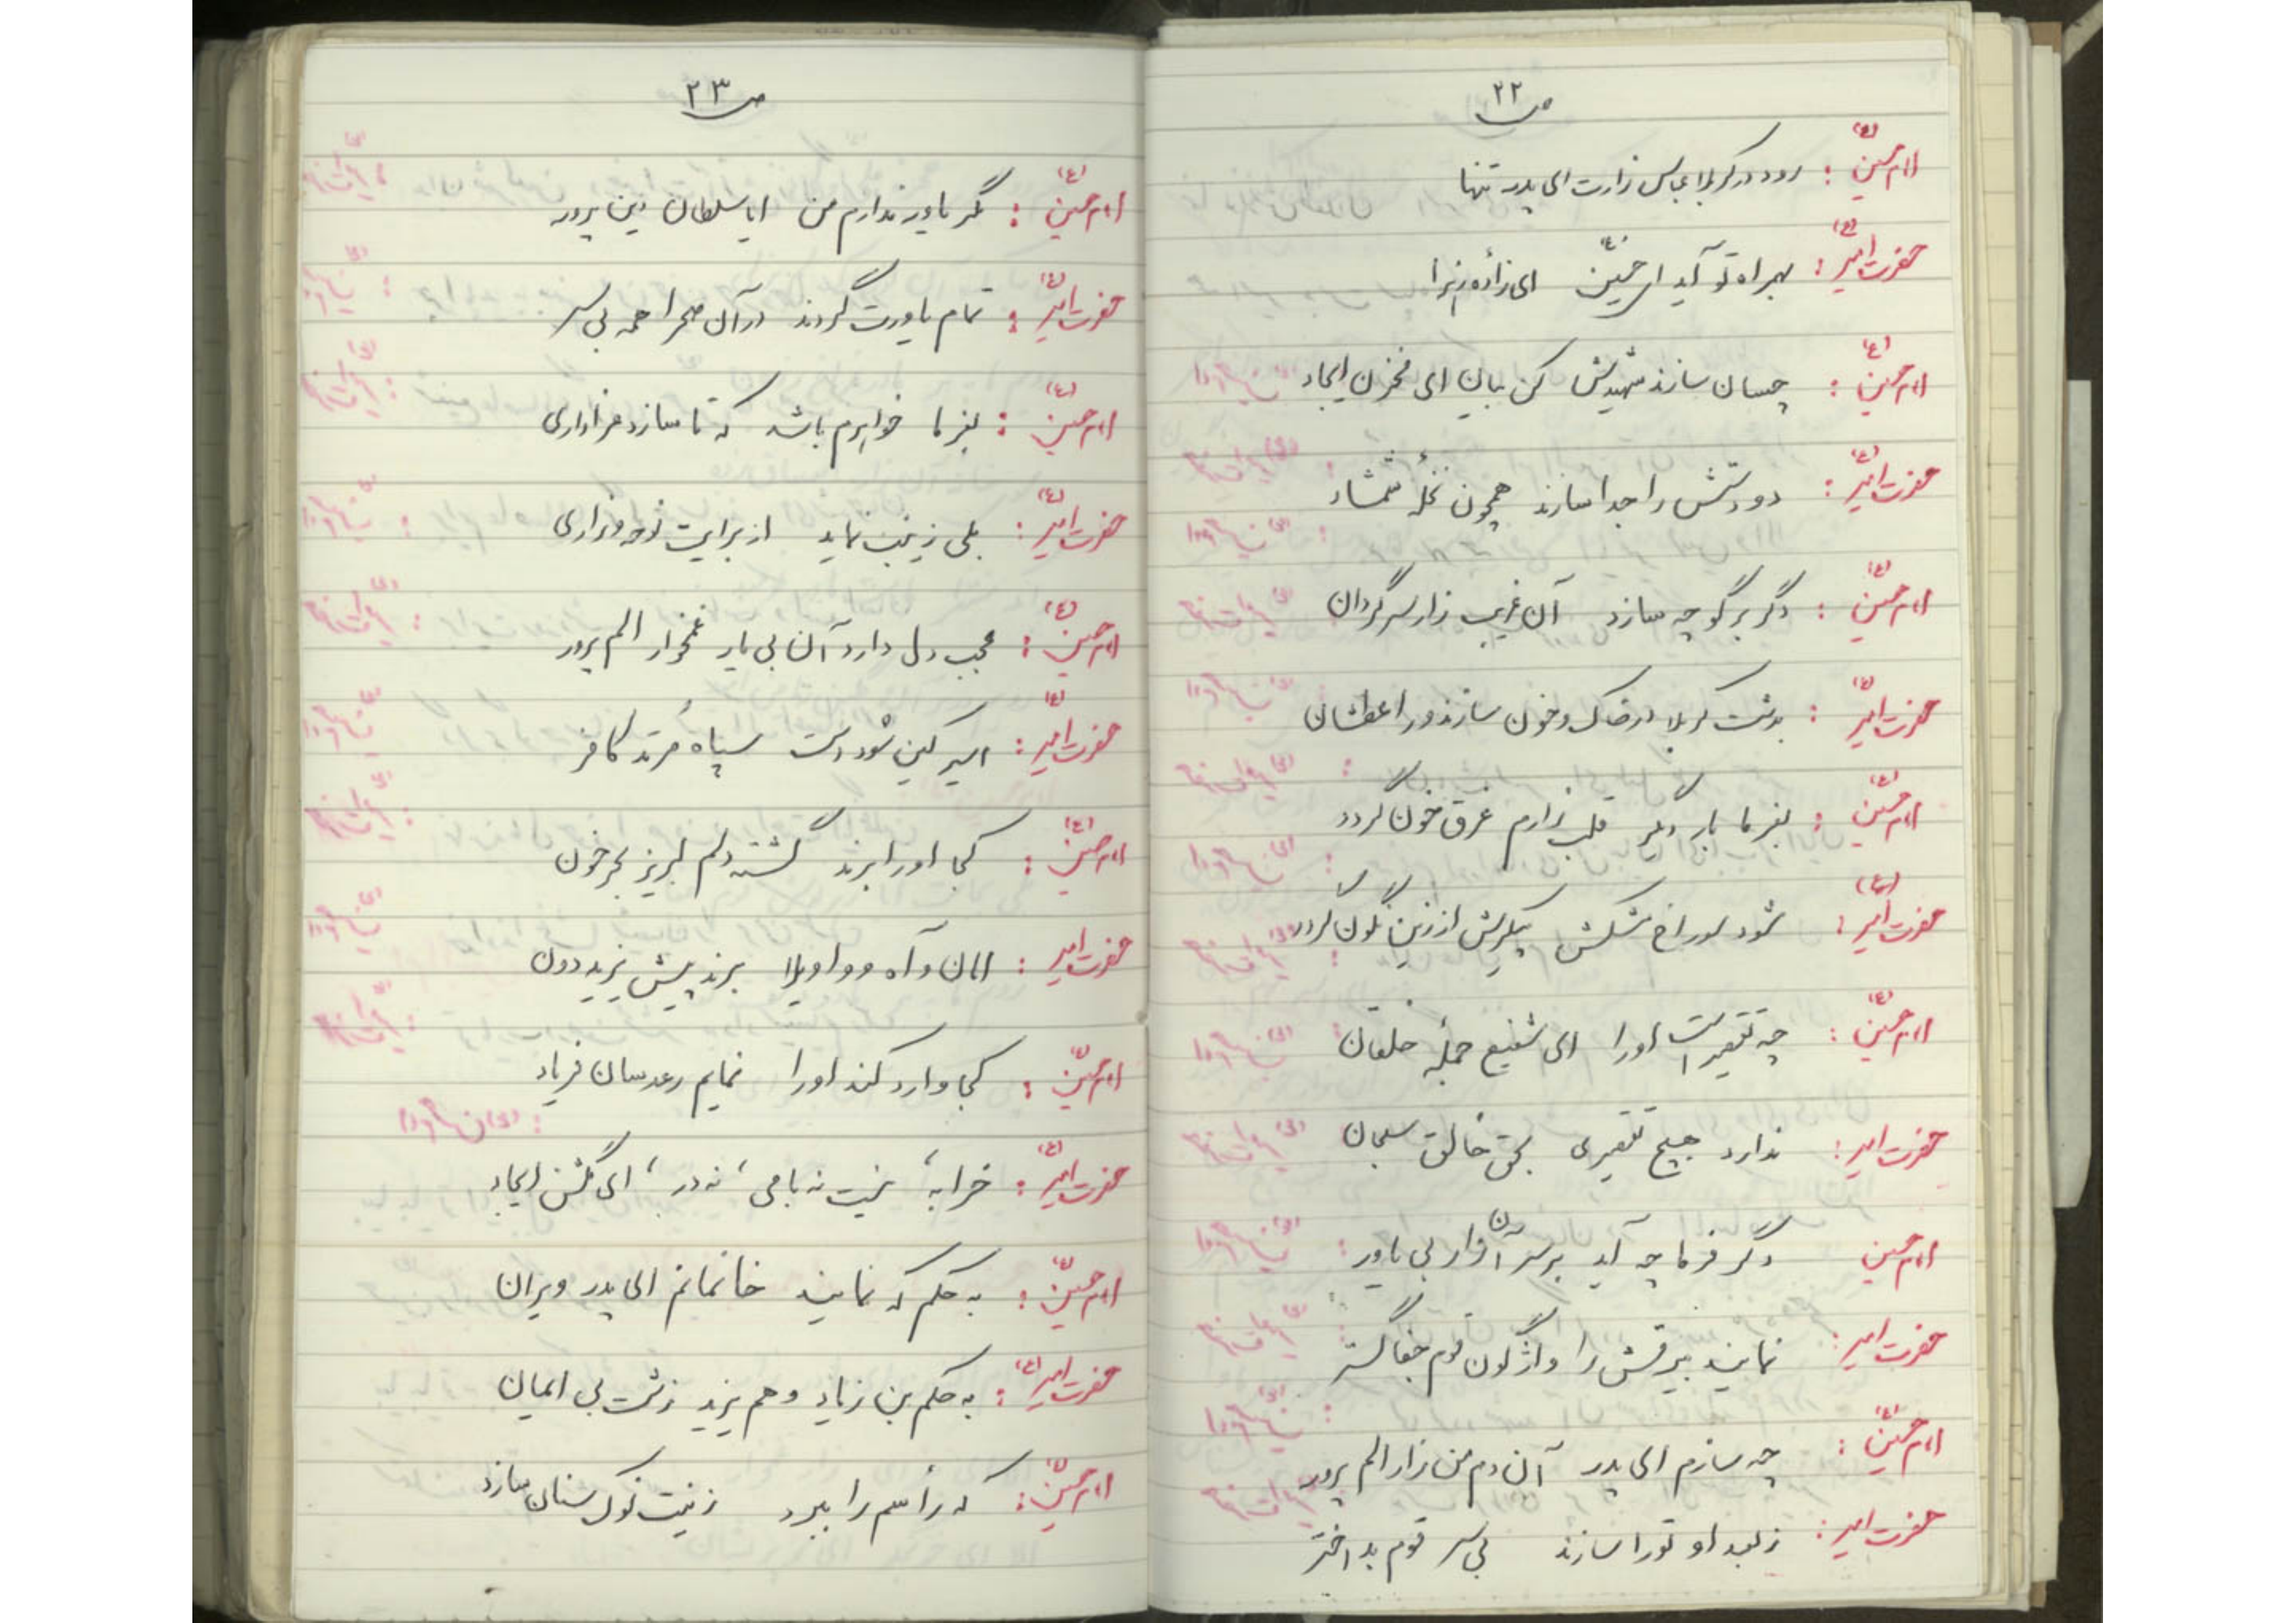 ص ۲۲
امام حسین (ع) : رود در کربلا عباس زارت ای پدر تنها
حضرت امیر (ع) : بهمراه تو آید ای حسین (ع) ای زادهٔ زهرا
امام حسین (ع) : چسان سازند شهیدش کن بیان ای مخزن ایجاد
حضرت امیر (ع) : دو دستش را جدا سازند همچون نخلهٔ شمشاد
امام حسین (ع) : دگر برگو چه سازد آن غریب زار سرگردان
حضرت امیر (ع) : بدشت کربلا در خاک و خون سازند ورا عطشان
امام حسین (ع) : بفرما بار دیگر قلب زارم غرق خون گردد
حضرت امیر (ع) : شود سوراخ مشکش پیکرش از زین نگون گردد
امام حسین (ع) : چه تقصیر است او را ای شفیع جملهٔ خلقان
حضرت امیر : ندارد هیچ تقصیری بحق خالق سبحان
امام حسین دگر فرما چه آید بر سر آن زار بی یاور :
حضرت امیر : نمایند بیرقش را واژگون قوم جفا گستر
امام حسین (ع) : چه سازم ای پدر آن دم من زار الم پرور
حضرت امیر : ز بعد او تو را سازند بی سر قوم بد اختر
ص ۲۳
امام حسین (ع) : مگر یاور ندارم من ایا سلطان دین پرور
حضرت امیر (ع) : تمام یاورت گردند در آن صحرا همه بی سر
امام حسین (ع) : بفرما خواهرم باشد که تا سازد مرا زاری
حضرت امیر (ع) : بلی زینب نماید از برایت نوحه و زاری
امام حسین (ع) : عجب دل دارد آن بی یار غمخوار الم پرور
حضرت امیر (ع) : اسیر کین شود دست سپاه مرتد کافر
امام حسین (ع) : کجا او را برند گشته دلم لبریز بحر خون
حضرت امیر : امان و آه و واویلا برند پیش یزید دون
امام حسین (ع) : کجا وارد کند او را نمایم رعد سان فریاد
حضرت امیر (ع) : خرابه، نیست نه بامی، نه در، ای گلشن ایجاد
امام حسین (ع) : به حکم که نمایند خانمانم ای پدر ویران
حضرت امیر (ع) : به حکم بن زیاد و هم یزید زشت بی ایمان
امام حسین (ع) : که رأسم را ببرد زینت نوک سنان سازد